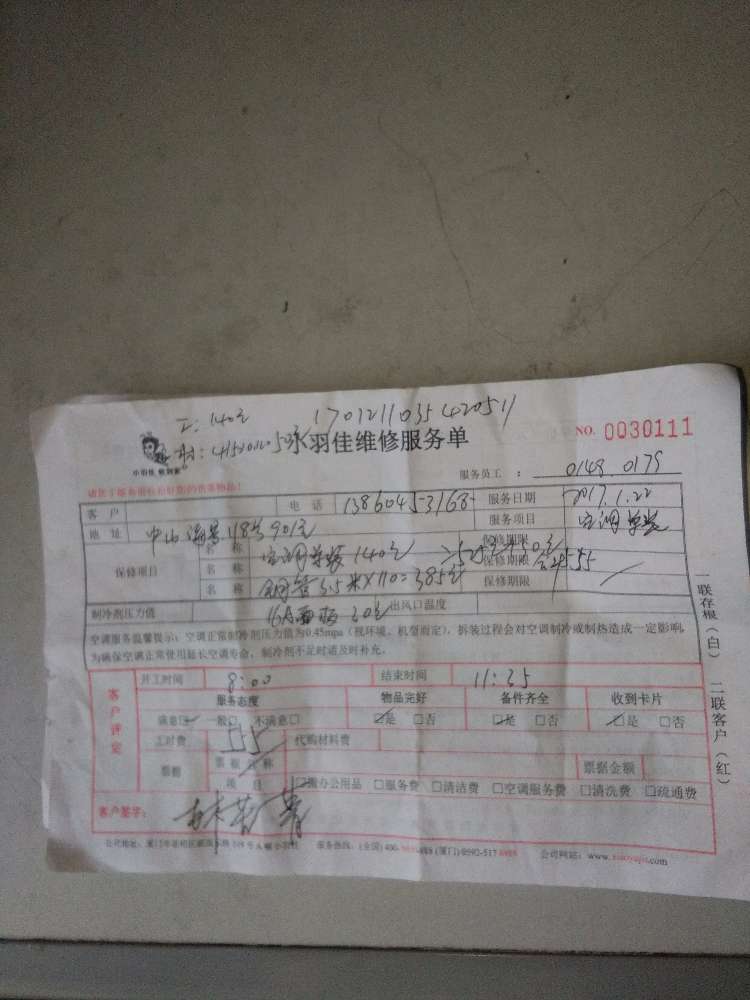 工:140元 1701211035420511
小羽佳 敢到家
永羽佳维修服务单
NO. 0030111
服务员工 : 0148 0179
客户 电话 13860453168 服务日期 2017.1.22
地址 中山 118号901室 服务项目 空调单装
保修项目 名称 空调单装 140元 保修期限
名称 铜管3.5米×110=385元 保修期限
名称 保修期限
制冷剂压力值 16A面板 30元 出风口温度
空调服务温馨提示:空调正常时冷剂压力值为0.45mpa(视环境、机型而定),拆装过程会对空调制冷或制热造成一定影响,
为确保空调正常使用延长空调寿命,制冷剂不足时请及时补充。
客户评定
开工时间 8:00 结束时间 11:35
服务态度 物品完好 备件齐全 收到卡片
满意□ 一般□ 不满意□ □是 □否 □是 □否 □是 □否
工时费 555 代购材料费
票据 票据名称 票据金额
项目 □办公用品 □服务费 □清洁费 □空调服务费 □清洗费 □疏通费
客户签字:
服务热线:(全国)400- (厦门)0592-517 公司网站:www.xiaoyujia.com
一联存根(白) 二联客户(红)